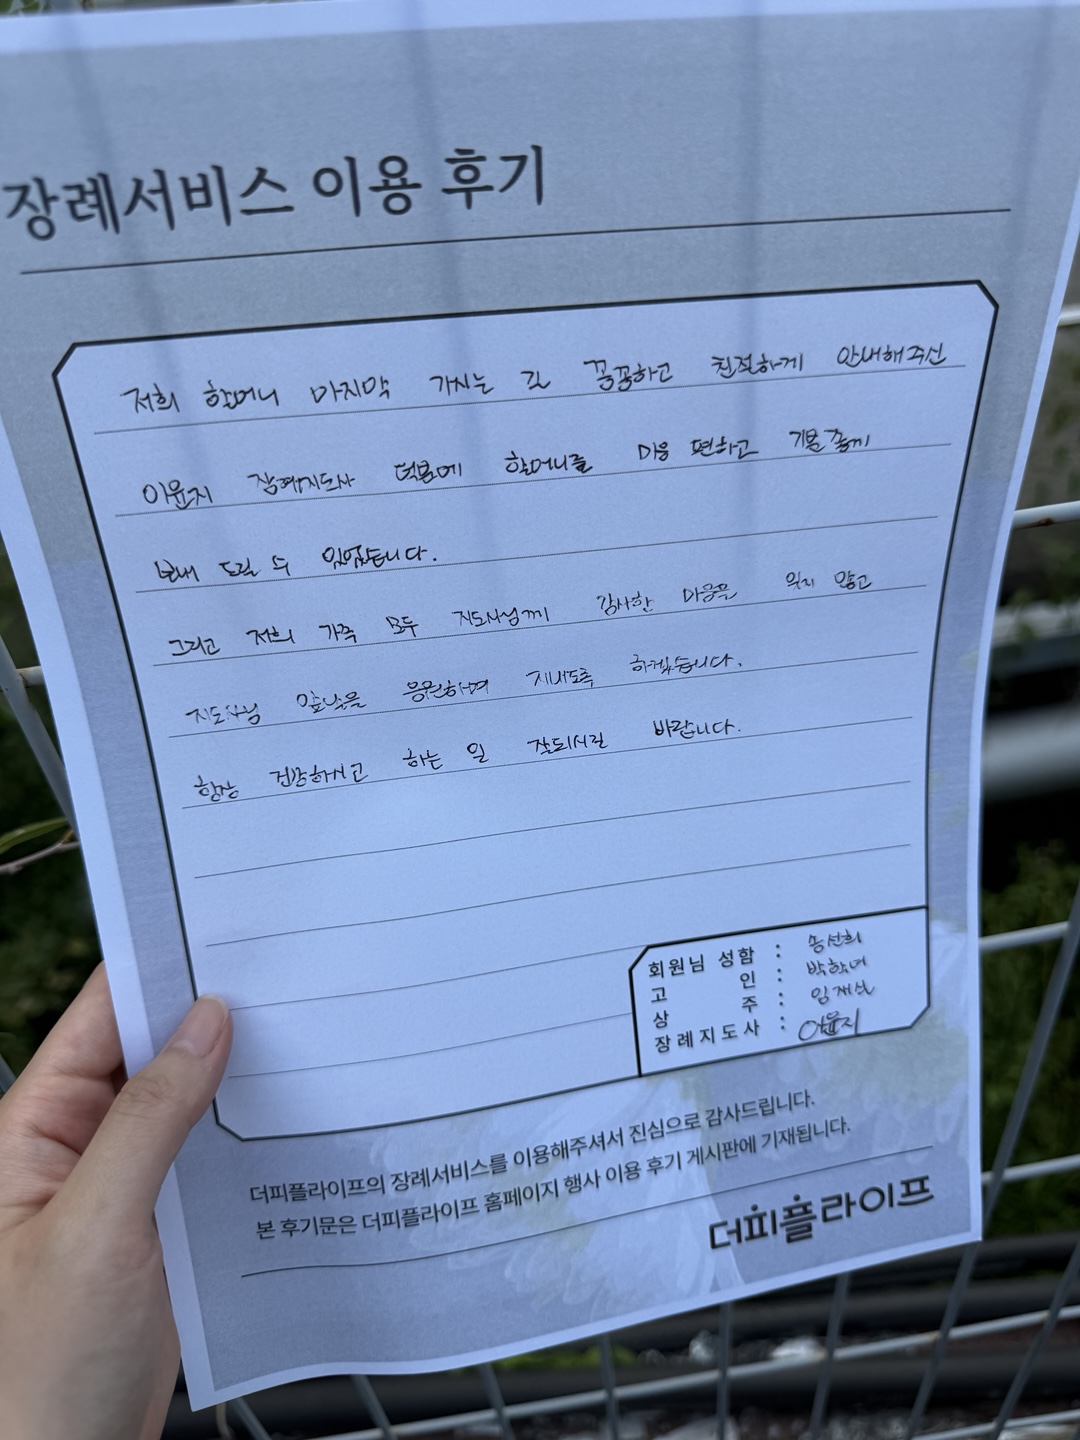 장례서비스 이용 후기
저희 할머니 마지막 가시는 길 꼼꼼하고 친절하게 안내해주신
이윤지 장례지도사 덕분에 할머니를 마음 편하고 기분좋게
보내 드릴 수 있었습니다.
그리고 저희 가족 모두 지도사님께 감사한 마음을 잊지 않고
지도사님 앞날을 응원하며 지내도록 하겠습니다.
항상 건강하시고 하는 일 잘되시길 바랍니다.
회원님 성함 : 송선희
고 인 : 박학녀
상 주 : 임재산
장례지도사 : 이윤지
더피플라이프의 장례서비스를 이용해주셔서 진심으로 감사드립니다.
본 후기문은 더피플라이프 홈페이지 행사 이용 후기 게시판에 기재됩니다.
더피플라이프